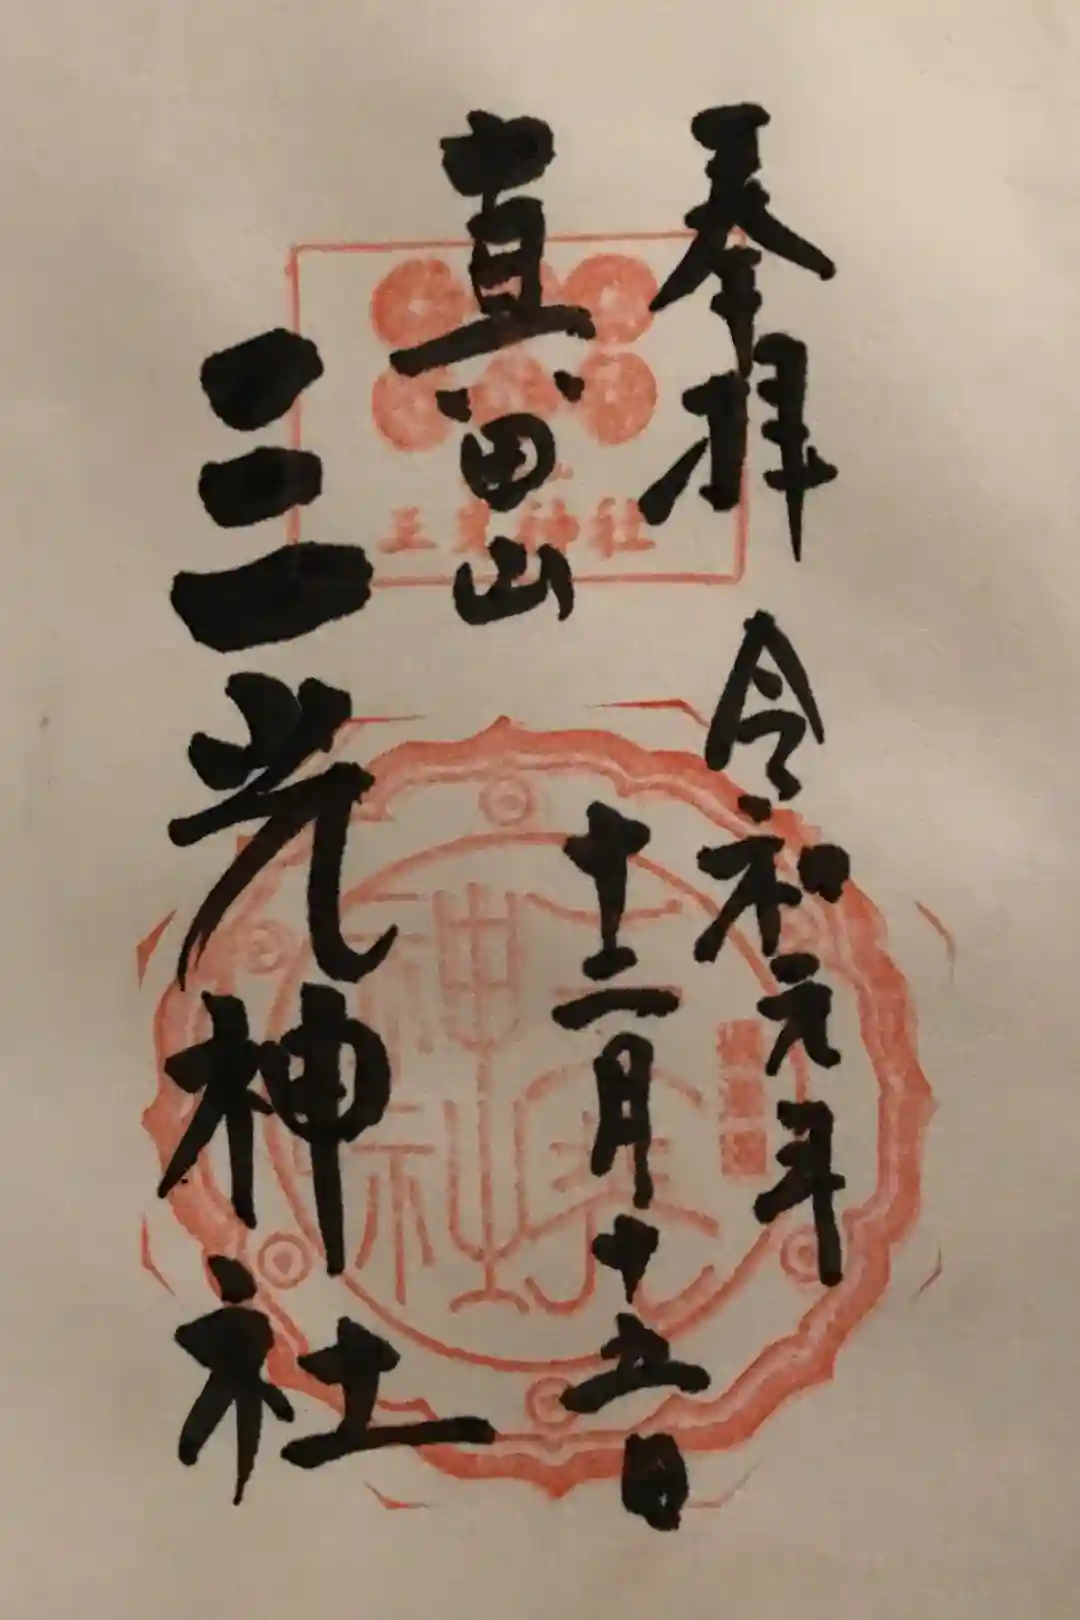 奉拝
令和元年
十二月十五日
真田山
三光神社
三光神社
三光神社